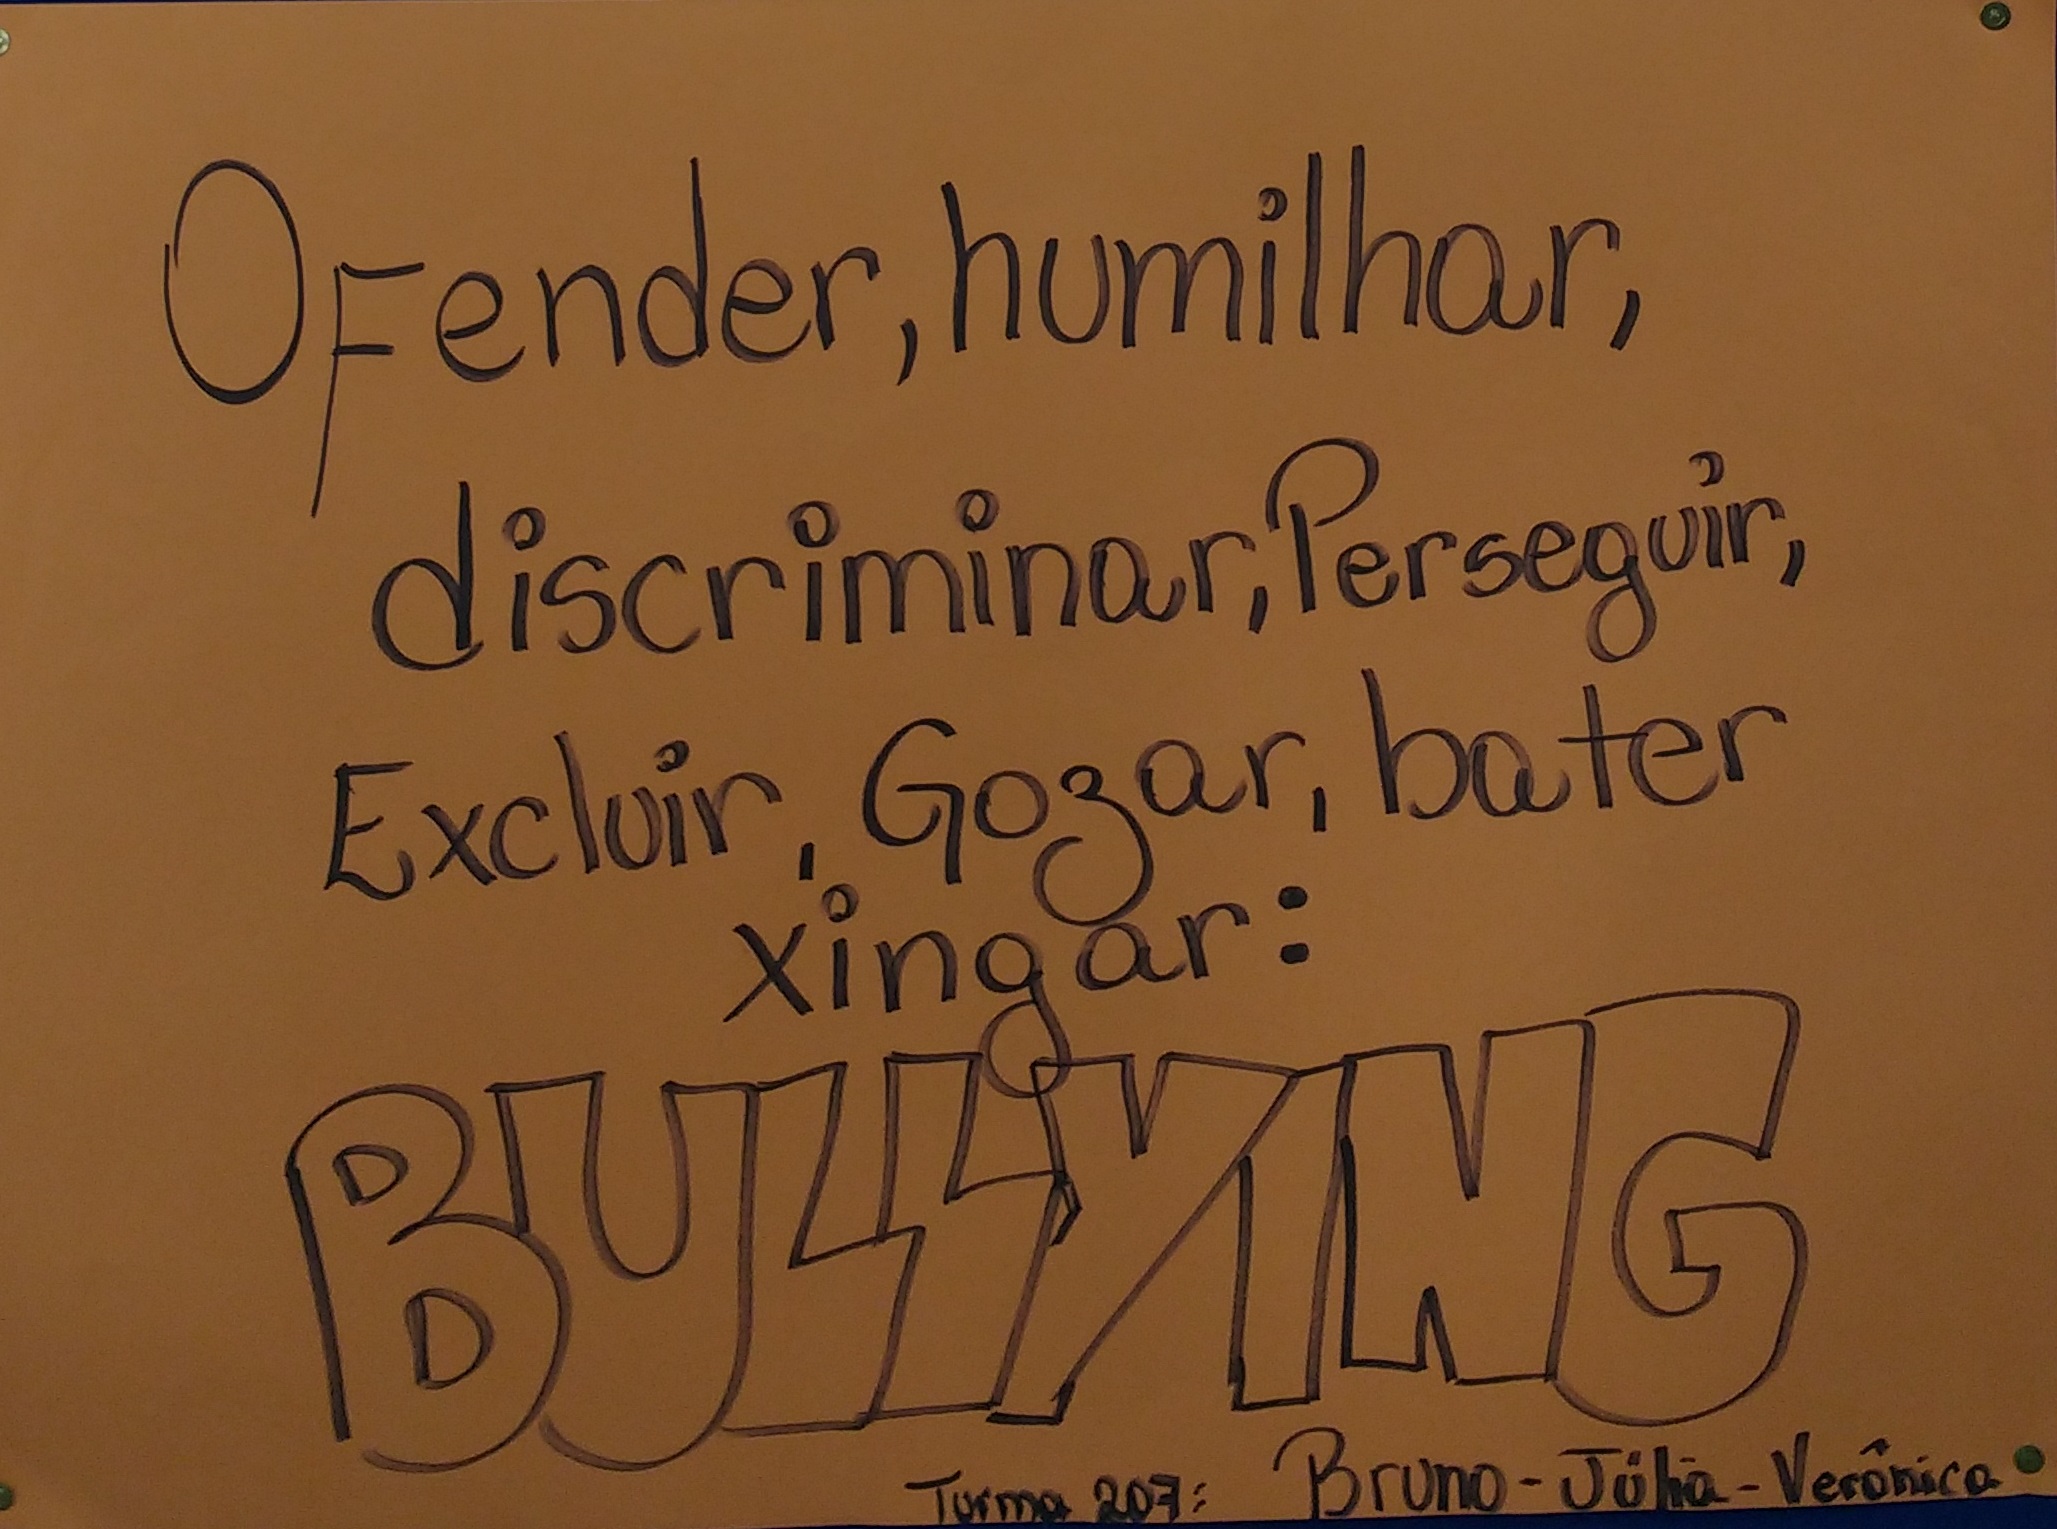 Ofender, humilhar,
discriminar, Perseguir,
Excluir, Gozar, bater
xingar:
BULLYING
Turma 207: Bruno - Júlia - Verônica